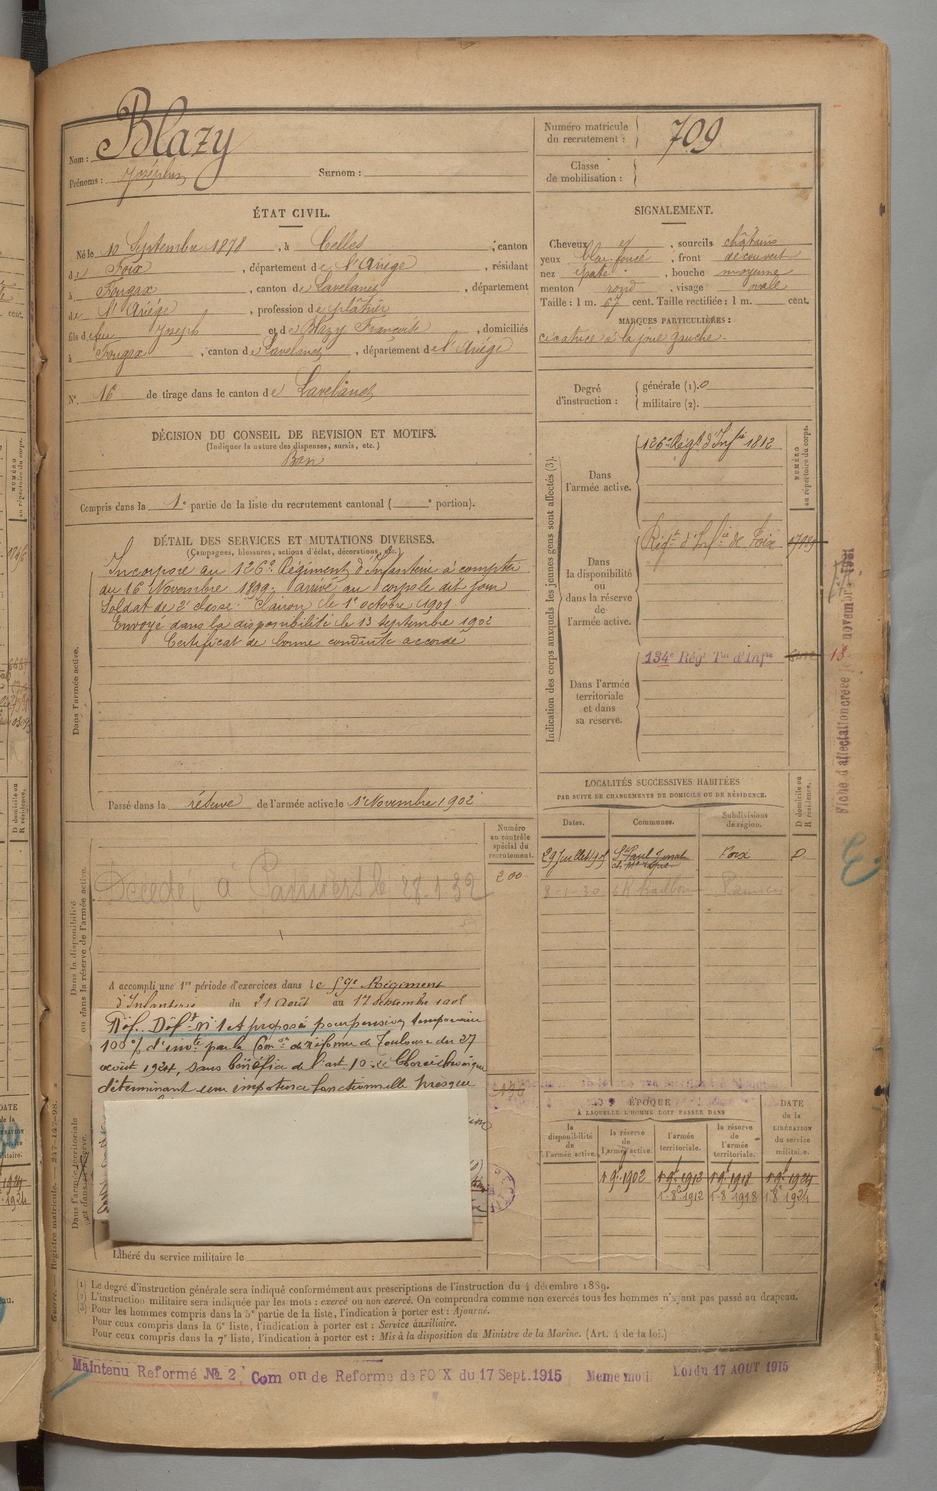 Nom : Blazy
Prénoms : Joséphin Surnom :
Numéro matricule du recrutement : 709
Classe de mobilisation :
ÉTAT CIVIL.
Né le 10 Septembre 1878, à Celles, canton
de Foix, département de l'Ariège, résidant
à Fougax, canton de Lavelanet, département
de l'Ariège, profession de plâtrier
fils de feu Joseph et de Blazy Françoise, domiciliés
à Fougax, canton de Lavelanet, département de l'Ariège
N° 16 de tirage dans le canton de Lavelanet
SIGNALEMENT.
Cheveux et, sourcils châtains
yeux foncé, front découvert
nez épaté, bouche moyenne
menton rond, visage ovale
Taille : 1 m. 67 cent. Taille rectifiée : 1 m. cent.
MARQUES PARTICULIÈRES :
cicatrice à la joue gauche.
Degré d'instruction : générale (1). 0
militaire (2).
DÉCISION DU CONSEIL DE REVISION ET MOTIFS.
(Indiquer la nature des dispenses, sursis, etc.)
Bon
Compris dans la 1e partie de la liste du recrutement cantonal ( e portion).
DÉTAIL DES SERVICES ET MUTATIONS DIVERSES.
(Campagnes, blessures, actions d'éclat, décorations, etc.)
Dans l'armée active.
Incorporé au 126e Régiment d'Infanterie à compter
du 16 Novembre 1899, arrivé au corps le dit jour
Soldat de 2e classe. Clairon le 1er octobre 1901
Envoyé dans la disponibilité le 13 septembre 1902
Certificat de bonne conduite accordé
Passé dans la réserve de l'armée active le 1er Novembre 1902
Indication des corps auxquels les jeunes gens sont affectés (3).
NUMÉRO au répertoire du corps.
Dans l'armée active.
126e Régt d'Infie 1812
Dans la disponibilité ou dans la réserve de l'armée active.
Régt d'Infie de Foix
Dans l'armée territoriale et dans sa réserve.
134e Régt Tal d'Infie
18
LOCALITÉS SUCCESSIVES HABITÉES
PAR SUITE DE CHANGEMENTS DE DOMICILE OU DE RÉSIDENCE.
Dates. Communes. Subdivisions de région. D domicile ou R résidence.
St Paul Foix D
8-1-30 Pamiers
Dans la disponibilité ou dans la réserve de l'armée active.
Numéro au contrôle spécial du recrutement.
200
Décédé à Pamiers le 28.1.32
A accompli une 1re période d'exercices dans le 59e Régiment
d'Infanterie du 21 août au 17 septembre 1905
Réf. Déf. n°1 et proposé pour pension temporaire
100% d'invté par la Comon de réforme de Toulouse du 27
août 1924, sans bénéfice de l'art 10. Chorée chronique
déterminant une impotence fonctionnelle presque
Dans l'armée territoriale et dans sa réserve.
Libéré du service militaire le
ÉPOQUE
À LAQUELLE L'HOMME DOIT PASSER DANS
la disponibilité de l'armée active. la réserve de l'armée active. l'armée territoriale. la réserve de l'armée territoriale. DATE de la LIBÉRATION du service militaire.
1-8 1912 1-8 1918 1-8 1924
(1) Le degré d'instruction générale sera indiqué conformément aux prescriptions de l'instruction du 4 décembre 1889.
(2) L'instruction militaire sera indiquée par les mots : exercé ou non exercé. On comprendra comme non exercés tous les hommes n'ayant pas passé au drapeau.
(3) Pour les hommes compris dans la 5e partie de la liste, l'indication à porter est : Ajourné.
Pour ceux compris dans la 6e liste, l'indication à porter est : Service auxiliaire.
Pour ceux compris dans la 7e liste, l'indication à porter est : Mis à la disposition du Ministre de la Marine. (Art. 4 de la loi.)
Maintenu Reformé № 2 Com on de Reforme de FOIX du 17 Sept. 1915 Meme motif Loi du 17 AOUT 1915